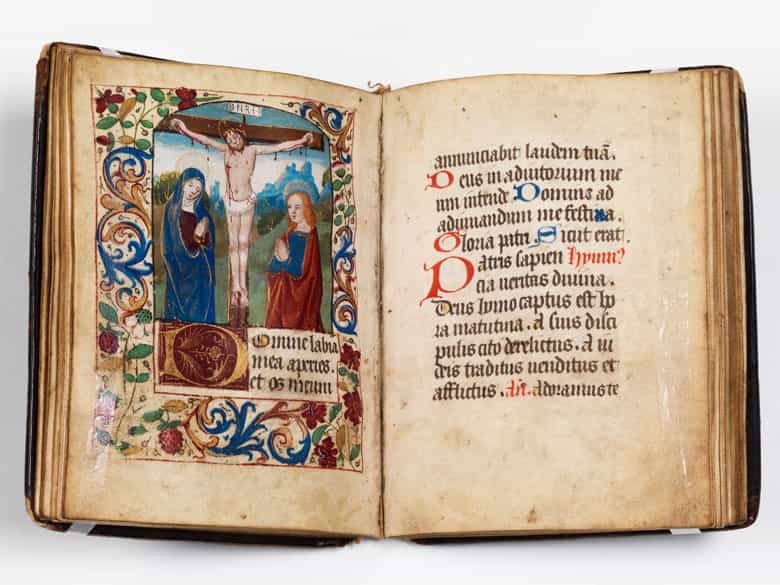 INRI
Domine labia
mea aperies.
et os meum
annunciabit laudem tuā.
Deus in adiutorium me
um intende Domine ad
adiuuandum me festina.
Gloria patri. Sicut erat.
Patris sapien hymn⁹
cia ueritas diuina.
Deus homo captus est ho
ra matutina. A suis disci
pulis cito derelictus. A iu
deis traditus uenditus et
afflictus. An̄. Adoramus te